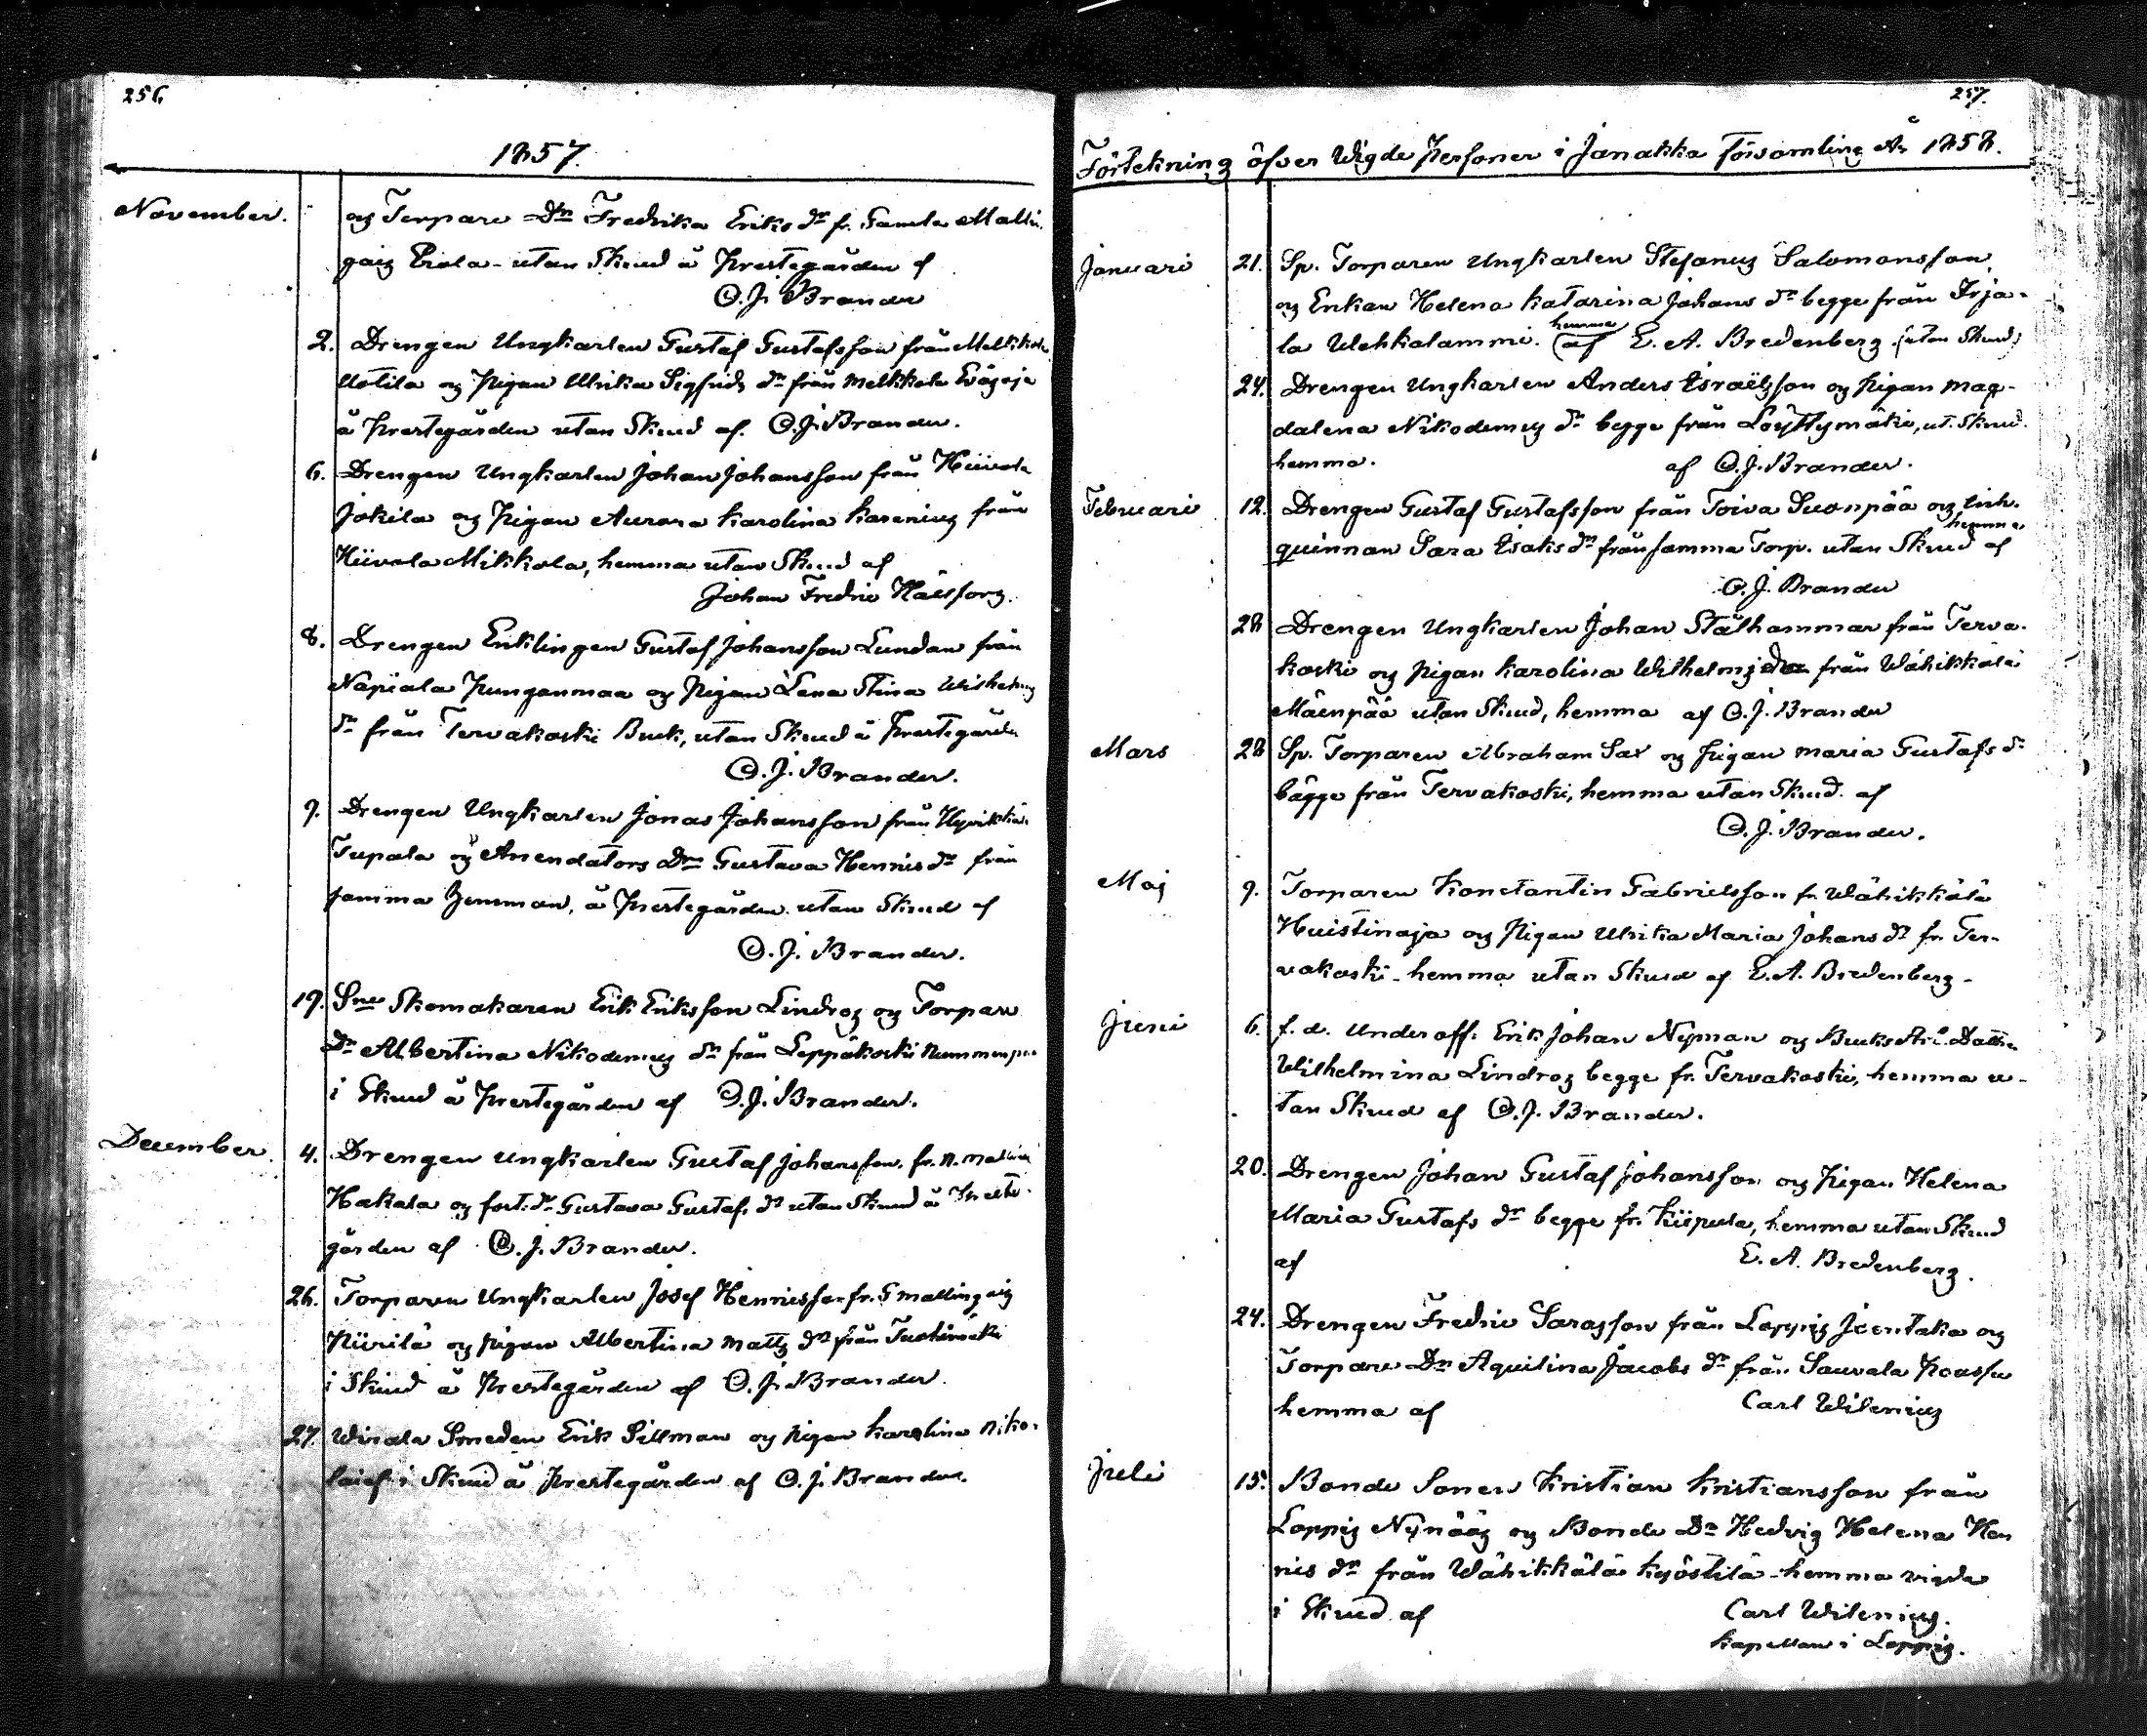 256.
1857.
November.
og Torpare Dtr Fredrika Eriks dr fr. Gamla
utan Skrud å Prestegården af
C. J. Brander
2. Drengen Ungkarlen Gustaf Gustafsson från
Uotila og Pigan Ulrika Sigfrids dr från Melkkola
å Prestegården utan Skrud af. C. J. Brander.
6. Drengen Ungkarlen Johan Johansson från Hiivola
Jokila og Pigan Aurora Karolina Karenius från
Hiivola Mikkola, hemma utan Skrud af
Johan Fredric
8. Drengen Enklingen Gustaf Johansson Lundan från
Napiala Punganmaa og Pigan Lena Stina Wilhelms
dr från Tervakoski Bruk, utan Skrud å Prestegården
C. J. Brander.
9. Drengen Ungkarlen Jonas Johansson från
Tupala og Arrendators Dtr Gustava Henriks dr från
samma hemman, å Prestegården utan Skrud af
C. J. Brander.
19. Sne Skomakaren Erik Eriksson Lindros og Torpare
Dr Albertina Nikodemus dr från Leppäkoski
i Skrud å Prestegården af C. J. Brander.
December. 4. Drengen Ungkarlen Gustaf Johansson. fr. N.
Hakala og Gustava Gustafs dr utan Skrud å Preste-
gården af C. J. Brander.
26. Torparen Ungkarlen Josef Henricsson fr. G
og Pigan Albertina Matts dr från
i Skrud å Prestegården af C. J. Brander.
27. Wirala Smeden Erik Sillman og Pigan Karolina Niko-
laief i Skrud å Prestegården af C. J. Brander.
257.
Förtekning öfver Wigde Personer i Janakka församling År 1858.
Januari 21. Sp. Torparen Ungkarlen Stefanus Salomonsson,
og Enkan Helena Katarina Johans dr begge från Irja-
la Wehkalammi. hemma af E. A. Bredenberg. (utan Skrud)
24. Drengen Ungkarlen Anders Israelsson og Pigan Mag-
dalena Nikodemus dr begge från Löyttymäki, ut. Skrud.
hemma. af C. J. Brander.
Februari 12. Drengen Gustaf Gustafsson från Toiva Suonpää og
quinnan Sara Isaks dr från samma Torp. utan Skrud hemma af
C. J. Brander
28 Drengen Ungkarlen Johan Stålhammar från Terva-
koski og Pigan Karolina Wilhelms dr från Wähikkälä
Mäenpää utan Skrud, hemma af C. J. Brander
Mars 28 Sp. Torparen Abraham Sax og Pigan Maria Gustafs dr
bägge från Tervakoski, hemma utan Skrud. af
C. J. Brander.
Maj 9. Torparen Konstantin Gabrielsson fr. Wähikkälä
Huistinoja og Pigan Ulrika Maria Johans dr fr. Ter-
vakoski - hemma utan Skrud af E. A. Bredenberg -
Juni 6. f. d. Underoff. Erik Johan Nyman og Bruks
Wilhelmina Lindros begge fr. Tervakoski, hemma u-
tan Skrud af C. J. Brander.
20. Drengen Johan Gustaf Johansson og Pigan Helena
Maria Gustafs dr begge fr. Kiipula, hemma utan Skrud
af E. A. Bredenberg.
24. Drengen Fredric Sarasson från Loppis Joentaka og
Torpare Dr Aquilina Jacobs dr från Sauvala
hemma af Carl Wilenius
Juli 15. Bonde Sonen Kristian Kristiansson från
Loppis Nynääs og Bonde Dr Hedvig Helena Hen
rics dr från Wähikkälä Kyöstilä - hemma vigde
i Skrud af Carl Wilenius.
Kapellan i Loppis.